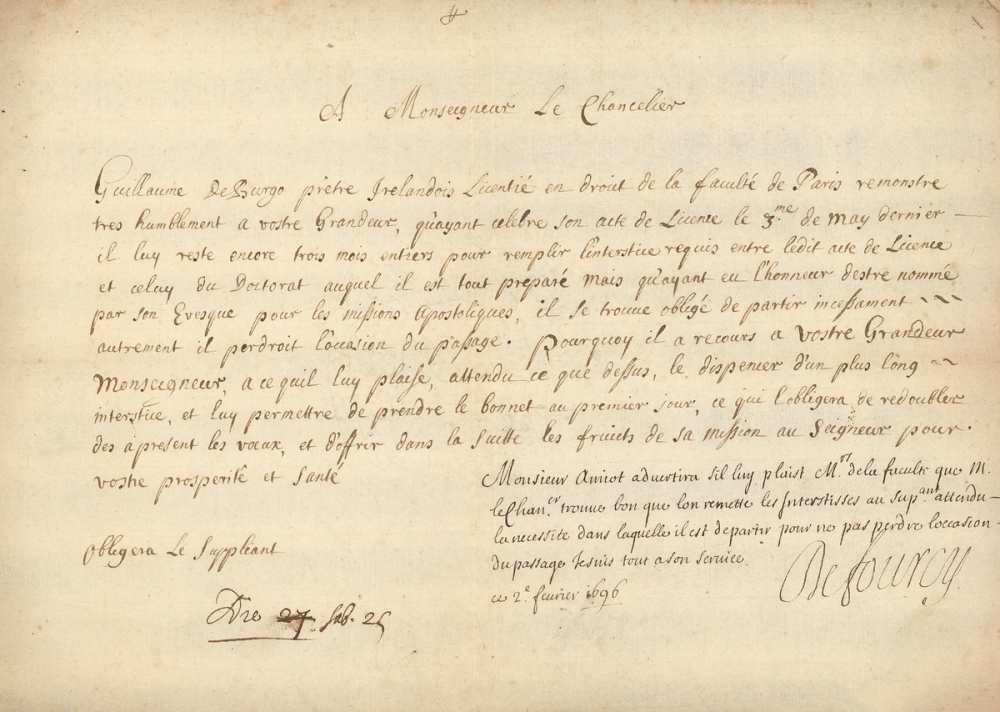 A Monseigneur Le Chancelier
Guillaume De Burgo prêtre Irelandois Licentié en droit de la faculté de Paris remonstre
tres humblement a vostre Grandeur, qu'ayant celebre son acte de Licence le 3.me de may dernier
il luy reste encore trois mois entiers pour remplir l'interstice requis entre ledit acte de Licence
et celuy du Doctorat auquel il est tout preparé mais qu'ayant eu l'honneur destre nommé
par son Evesque pour les missions Apostoliques, il se trouve obligé de partir incessament
autrement il perdroit l'occasion du passage. Pourquoy il a recours a Vostre Grandeur
Monseigneur, a ce quil luy plaise, attendu ce que dessus, le dispencer d'un plus long
interstice, et luy permettre de prendre le bonnet au premier jour, ce qui l'obligera de redoubler
des apresent les vœux, et d'offrir dans la suitte les fruicts de sa mission au Seigneur pour
vostre prosperité et santé
obligera Le Suppliant
Monsieur Amiot advertira sil luy plaist M.rs de la faculté que M.
le Chan.er trouve bon que lon remette les Interstisses au sup.ant attendu
la necessite dans laquelle il est de partir pour ne pas perdre loccasion
du passage Je suis tout a son service.
ce 2.e fevrier 1696
De fourcy
27 feb. 25